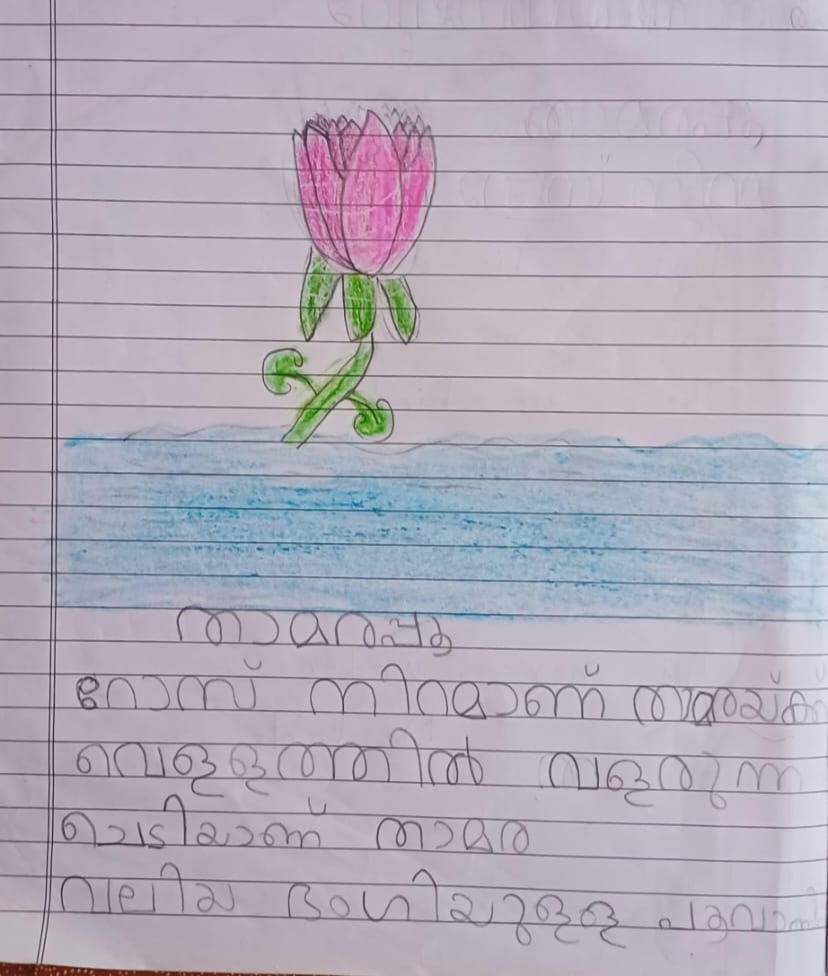 താമരപ്പൂ
റോസ് നിറമാണ് തമരയ്ക്
വെള്ളത്തിൽ വളരുന്ന
ചെടിയാണ് താമര
വലിയ ഭംഗിയുള്ള